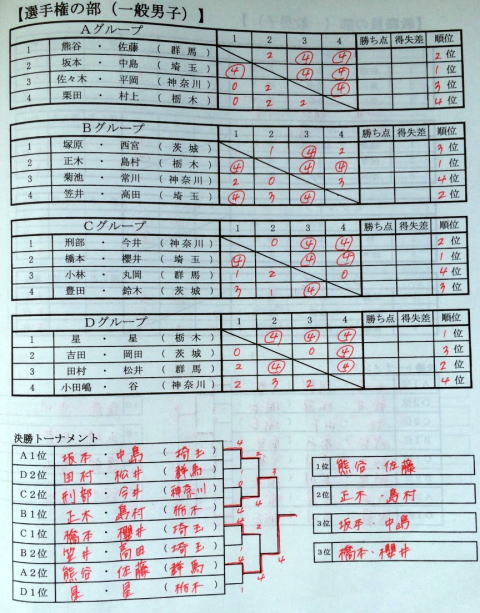 【選手権の部（一般男子）】
Aグループ 1 2 3 4 勝ち点 得失差 順位
1 熊谷 ・ 佐藤 (群馬) 2 ④ ④ 2位
2 坂本 ・ 中島 (埼玉) ④ ④ ④ 1位
3 佐々木 ・ 平岡 (神奈川) 0 2 ④ 3位
4 栗田 ・ 村上 (栃木) 0 2 2 4位
Bグループ 1 2 3 4 勝ち点 得失差 順位
1 塚原 ・ 西宮 (茨城) 1 ④ 2 3位
2 正木 ・ 島村 (栃木) ④ ④ ④ 1位
3 菊池 ・ 常川 (神奈川) 2 0 3 4位
4 笠井 ・ 高田 (埼玉) ④ 3 ④ 2位
Cグループ 1 2 3 4 勝ち点 得失差 順位
1 刑部 ・ 今井 (神奈川) 0 ④ ④ 2位
2 橋本 ・ 櫻井 (埼玉) ④ ④ ④ 1位
3 小林 ・ 丸岡 (群馬) 1 2 0 4位
4 豊田 ・ 鈴木 (茨城) 3 1 ④ 3位
Dグループ 1 2 3 4 勝ち点 得失差 順位
1 星 ・ 星 (栃木) ④ ④ ④ 1位
2 吉田 ・ 岡田 (茨城) 0 0 ④ 3位
3 田村 ・ 松井 (群馬) 2 ④ ④ 2位
4 小田嶋 ・ 谷 (神奈川) 2 3 2 4位
決勝トーナメント
A1位 坂本 ・ 中島 (埼玉)
D2位 田村 ・ 松井 (群馬)
C2位 刑部 ・ 今井 (神奈川)
B1位 正木 ・ 島村 (栃木)
C1位 橋本 ・ 櫻井 (埼玉)
B2位 笠井 ・ 高田 (埼玉)
A2位 熊谷 ・ 佐藤 (群馬)
D1位 星 ・ 星 (栃木)
1位 熊谷 ・ 佐藤
2位 正木 ・ 島村
3位 坂本 ・ 中島
3位 橋本 ・ 櫻井